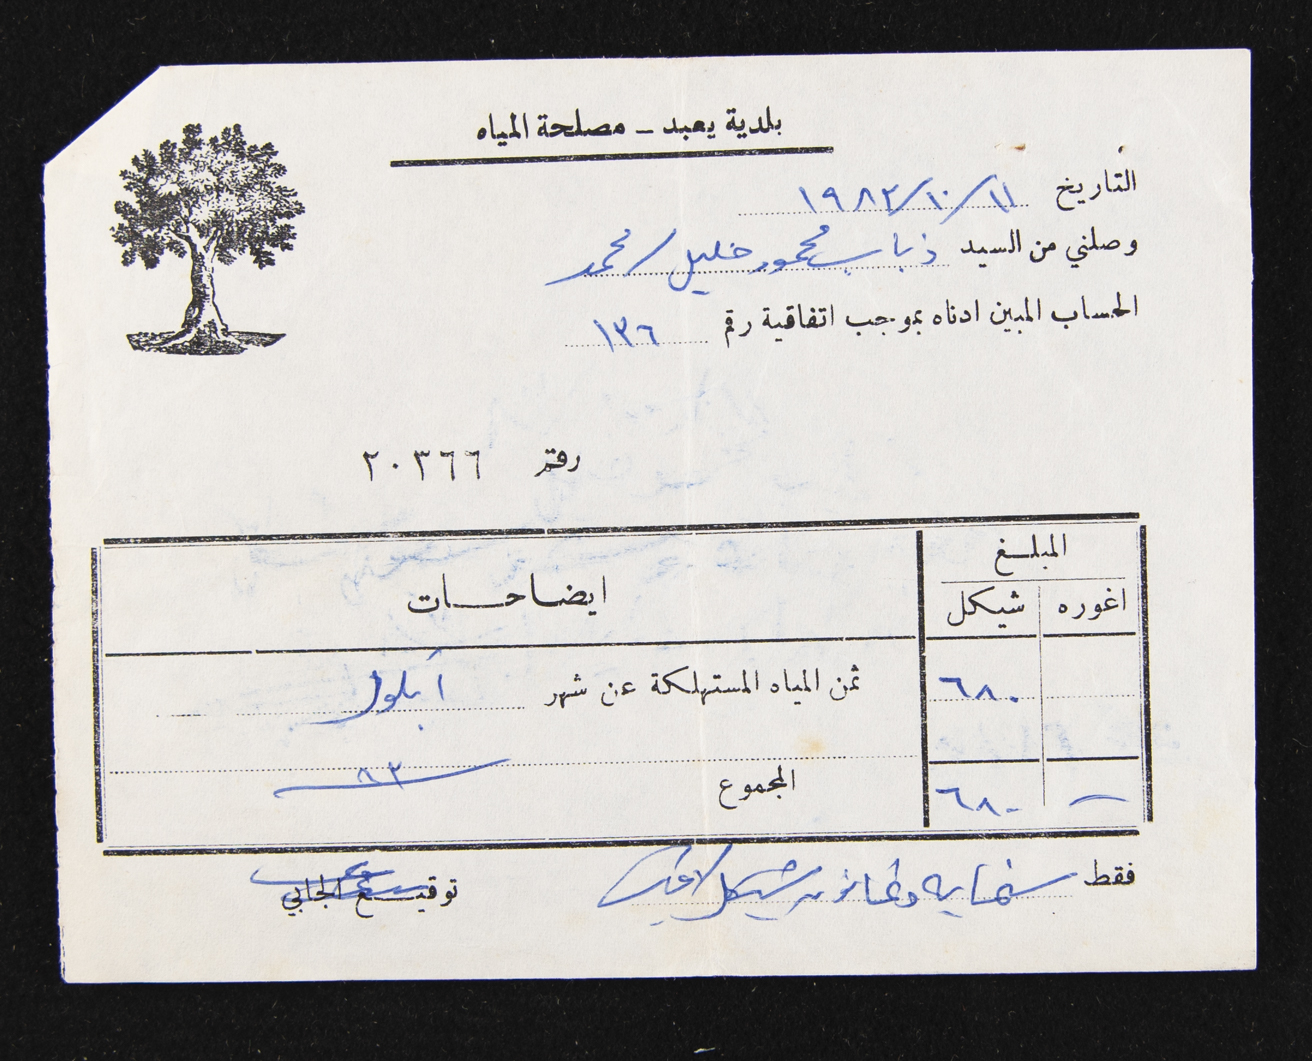 بلدية يعبد ــ مصلحة المياه
التاريخ ١١/١٠/١٩٨٢
وصلني من السيد ذياب محمود خليل / محمد
الحساب المبين ادناه بموجب اتفاقية رقم ١٣٦
رقم ٢٠٣٦٦
المبلغ
اغوره شيكل ايضاحات
٦٨٠ ثمن المياه المستهلكة عن شهر أيلول
٨٢
— ٦٨٠ المجموع
فقط ستماية وثمانون شيكل لاغير
توقيع الجابي